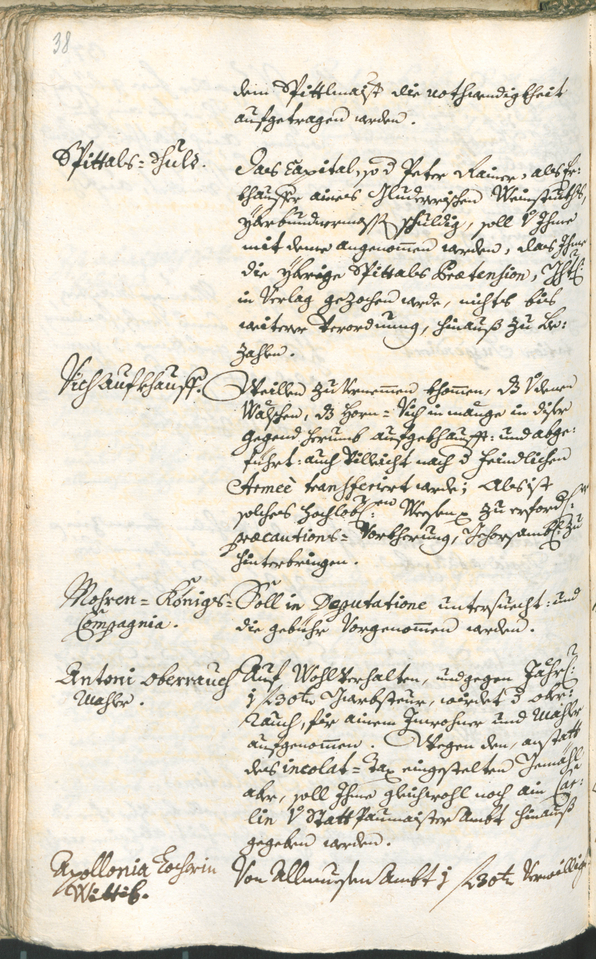 38
dem Spittlmaist. die nothwendigkheit
aufgetragen werden.
Spittals-schuld.
Das Capital, so d Peter Rainer, als er-
khauffer aines Glurnserischen Weinstuckhs,
schuldig, soll Ihme
mit deme angenommen werden, das Ihme
die ybrige Spittals Praetension,
in Verlag gezochen werde, nichts bis
weitere Verordnung, hinauß zu be-
zahlen.
Vich aufkhauff.
Weillen zu Vernemmen khommen, dß von denen
Wälschen, dß Horn-Vich in mänge in diser
gegend herumb aufgekhaufft: und abge-
führt: auch villeicht nach d feindlichen
Armee transferiert werde; Als ist
solches Hochlobl: Wesen zu erford
praecautions-Vorkherung, gehorsambl: zu
hinterbringen.
Mohren-Königs-
Compagnia.
Soll in Deputatione untersuecht: und
die gebühr Vorgenommen werden.
Antoni Oberrauch
Mahler.
Auf Wohlverhalten, und gegen Jährl:
1 f 30 kr Inwohnsteur, würdet d Ober-
rauch, für ainem Inwohner und Mahler
aufgenommen. Wegen den, anstatt
des incolat-Tax eingestelten Gemähl
aber, soll Ihme gleichwohl noch ain Car-
lin V Stattpaumaister Ambt hinauß
gegeben werden.
Apollonia Locherin
Wittib.
Von Allmuesen Ambt 1 f 30 kr Verwilliget